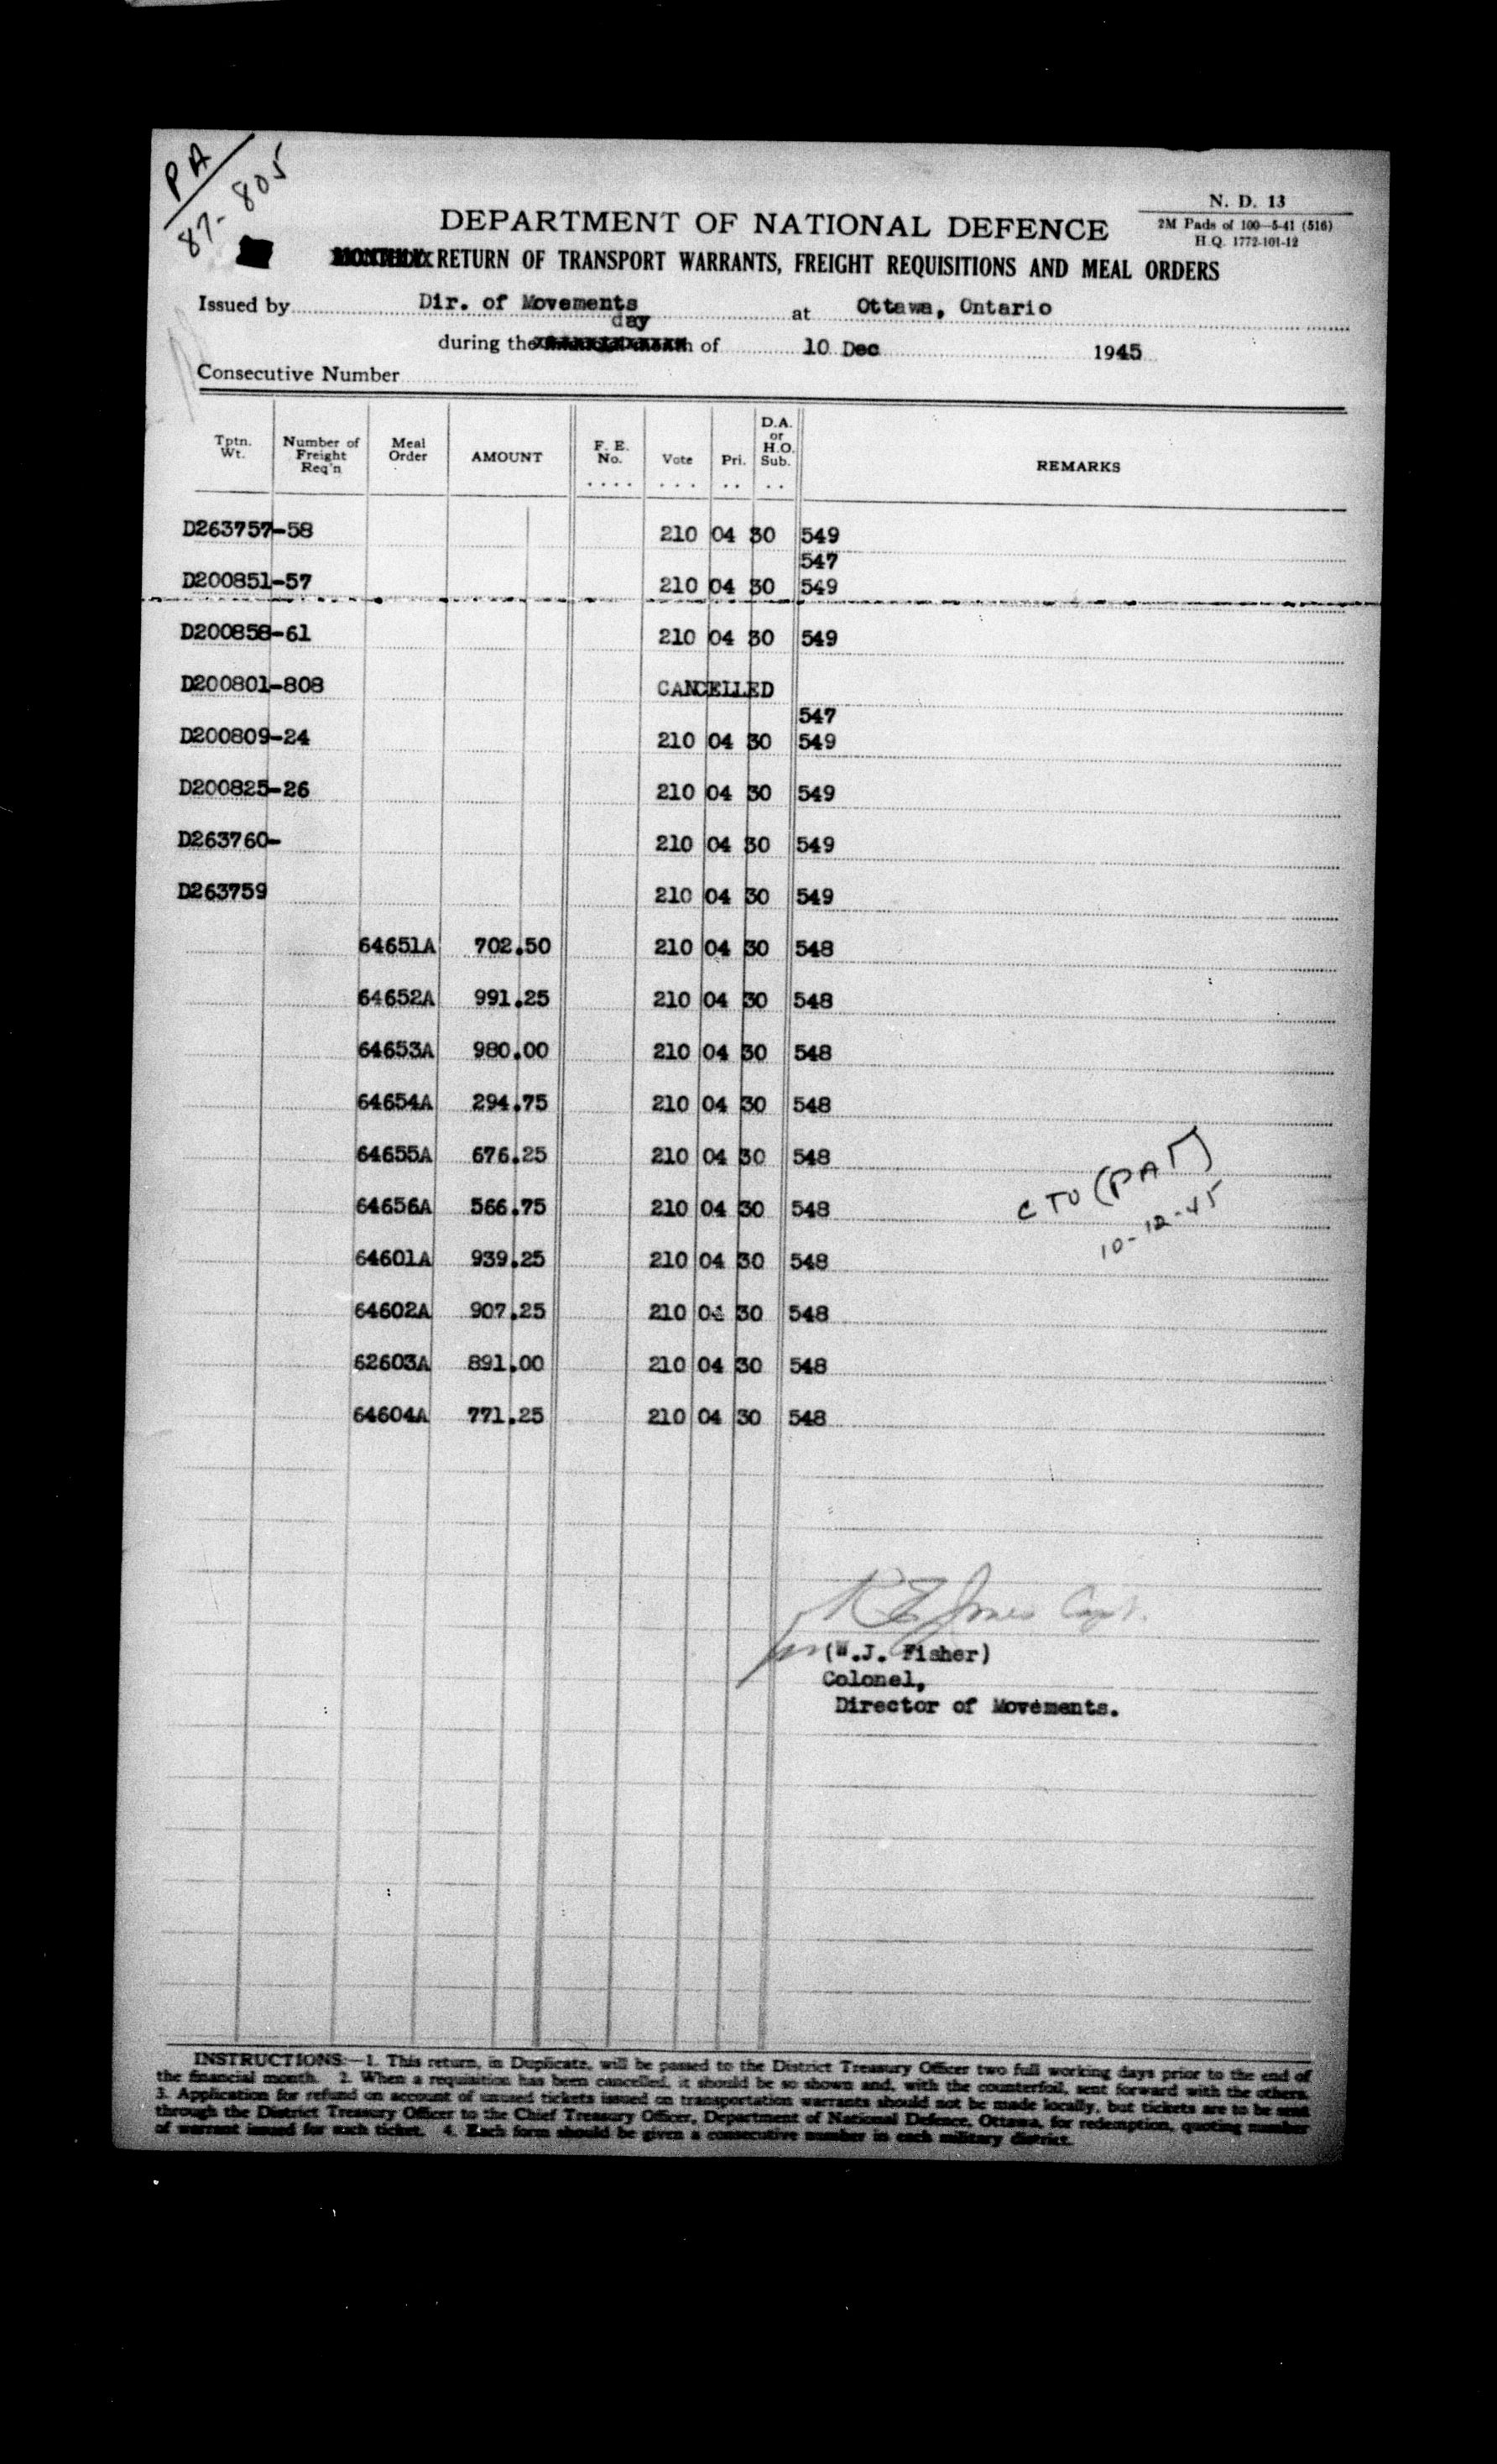 PA
87-805
N. D. 13
2M Pads of 100-5-41 (516)
H.Q. 1772-101-12
DEPARTMENT OF NATIONAL DEFENCE
RETURN OF TRANSPORT WARRANTS, FREIGHT REQUISITIONS AND MEAL ORDERS
Issued by Dir. of Movements at Ottawa, Ontario
day
during the of 10 Dec 1945
Consecutive Number
Tptn. Wt. Number of Freight Req'n Meal Order AMOUNT F. E. No. Vote Pri. D.A. or H.O. Sub. REMARKS
D263757-58 210 04 30 549
547
D200851-57 210 04 30 549
D200858-61 210 04 30 549
D200801-808 CANCELLED
547
D200809-24 210 04 30 549
D200825-26 210 04 30 549
D263760- 210 04 30 549
D263759 210 04 30 549
64651A 702.50 210 04 30 548
64652A 991.25 210 04 30 548
64653A 980.00 210 04 30 548
64654A 294.75 210 04 30 548
64655A 676.25 210 04 30 548
64656A 566.75 210 04 30 548
64601A 939.25 210 04 30 548
64602A 907.25 210 04 30 548
62603A 891.00 210 04 30 548
64604A 771.25 210 04 30 548
CTO (PAT)
10-12-45
Jones Capt.
for (W.J. Fisher)
Colonel,
Director of Movements.
INSTRUCTIONS:—1. This return, in Duplicate, will be passed to the District Treasury Officer two full working days prior to the end of
the financial month. 2. When a requisition has been cancelled, it should be so shown and, with the counterfoil, sent forward with the others.
3. Application for refund on account of unused tickets issued on transportation warrants should not be made locally, but tickets are to be sent
through the District Treasury Officer to the Chief Treasury Officer, Department of National Defence, Ottawa, for redemption, quoting number
of warrant issued for each ticket. 4. Each form should be given a consecutive number in each military district.